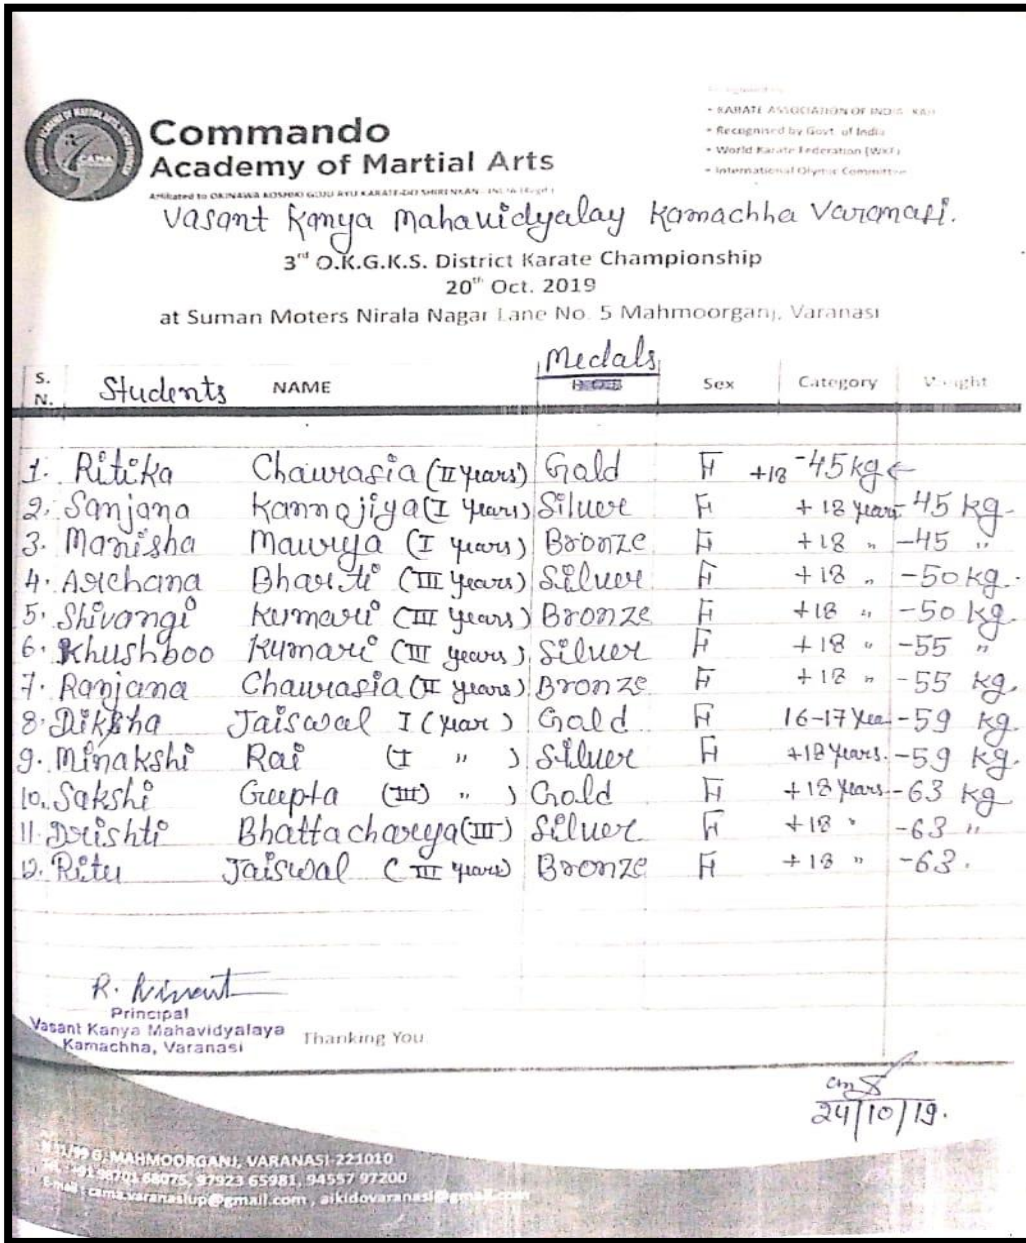 Recognised by
• KARATE ASSOCIATION OF INDIA - KAI
Commando
• Recognised by Govt. of India
Academy of Martial Arts
• World Karate Federation (WKF)
• International Olymic Committee
Affiliated to OKINAWA KOSHIKI GOJU RYU KARATE-DO SHIREIKAN - INDIA (Regd.)
Vasant Kanya Mahavidyalay Kamachha Varanasi.
3rd O.K.G.K.S. District Karate Championship
20th Oct. 2019
at Suman Moters Nirala Nagar Lane No. 5 Mahmoorganj, Varanasi
S. N. Students NAME Medals Sex Category Weight
1. Ritika Chaurasia (II years) Gald F +18 -45 kg
2. Sanjana Kannojiya (I years) Siluer F +18 years -45 kg.
3. Manisha Maurya (I years) Bronze F +18 " -45 "
4. Archana Bharti (III years) Siluer F +18 " -50 kg.
5. Shivangi Kumari (III years) Bronze F +18 " -50 kg.
6. Khushboo Kumari (III years) Siluer F +18 " -55 "
7. Ranjana Chaurasia (II years) Bronze F +18 " -55 kg.
8. Diksha Jaiswal I (year) Gald F 16-17 Yea -59 kg.
9. Minakshi Rai (I " ) Siluer F +18 Years. -59 kg.
10. Sakshi Gupta (III) " ) Gold F +18 Years -63 kg
11. Drishti Bhattacharya (III) Siluer F +18 " -63 "
12. Ritu Jaiswal (III years) Bronze F +18 " -63.
Principal
Vasant Kanya Mahavidyalaya
Kamachha, Varanasi
Thanking You
24/10/19.
MAHMOORGANJ, VARANASI-221010
97923 65981, 94557 97200
E-mail : cama.varanasiup@gmail.com , aikidovaranasi@gmail.com